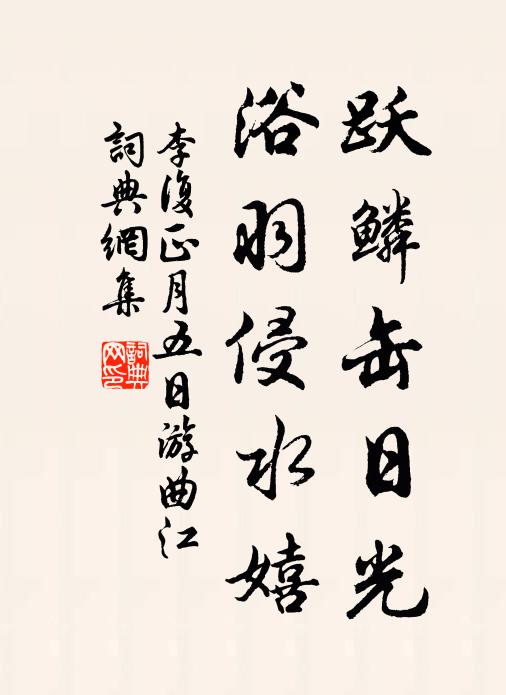 跃鱗缶日光
浴羽侵水嬉
李復正月五日游曲江
詞典網集
詞典网印